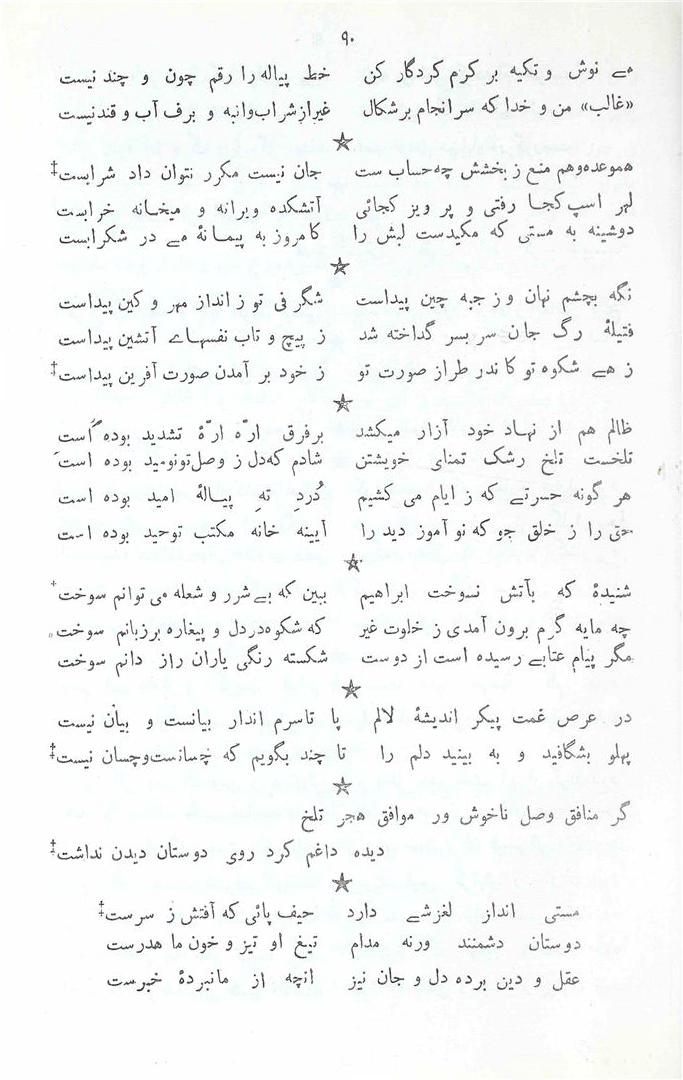 ۹۰
مے نوش و تکیه بر کرم کردگار کن خط پیاله را رقم چون و چند نیست
«غالب» من و خدا که سر انجام برشکال غیر از شراب و انبه و برف آب و قند نیست
هم وعده و هم منع ز بخشش چه حساب ست جان نیست مکرر نتوان داد شرابست‡
لہر اسپ کجا رفتی و پرویز کجائی آتشکده ویرانه و میخانه خرابست
دوشینه به مستی که مکیدست لبش را کامروز به پیمانهٔ مے در شکرابست
نگه بچشم نهان و ز جبهه چین پیداست شگرفی تو ز انداز مهر و کین پیداست
فتیلهٔ رگ جان سر بسر گداخته شد ز پیچ و تاب نفسہاے آتشین پیداست
زهے شکوه تو کاندر طراز صورت تو ز خود بر آمدن صورت آفرین پیداست‡
ظالم هم از نهاد خود آزار میکشد بر فرق ارّه ارّهٔ تشدید بوده است
تلخست تلخ رشک تمنای خویشتن شادم که دل ز وصل تو نومید بوده است
هر گونه حسرتے که ز ایام می کشیم دُردِ تهِ پیالهٔ امید بوده است
حق را ز خلق جو که نو آموز دید را آیینه خانه مکتب توحید بوده است
شنیدهٔ که بآتش نسوخت ابراهیم ببین که بے شرر و شعله می توانم سوخت
چه مایه گرم برون آمدی ز خلوت غیر که شکوه در دل و پیغاره بر زبانم سوخت
مگر پیام عتابے رسیده است از دوست شکسته رنگی یاران راز دانم سوخت
در عرض غمت پیکر اندیشهٔ لالم پا تا سرم انداز بیانست و بیان نیست
پهلو بشگافید و به بینید دلم را تا چند بگویم که چسانست و چسان نیست‡
گر منافق وصل ناخوش ور موافق هجر تلخ
دیده داغم کرد روی دوستان دیدن نداشت‡
مستی انداز لغزشے دارد حیف پائی که آفتش ز سرست‡
دوستان دشمنند ورنه مدام تیغ او تیز و خون ما هدرست
عقل و دین برده دل و جان نیز انچه از ما نبردهٔ خبرست